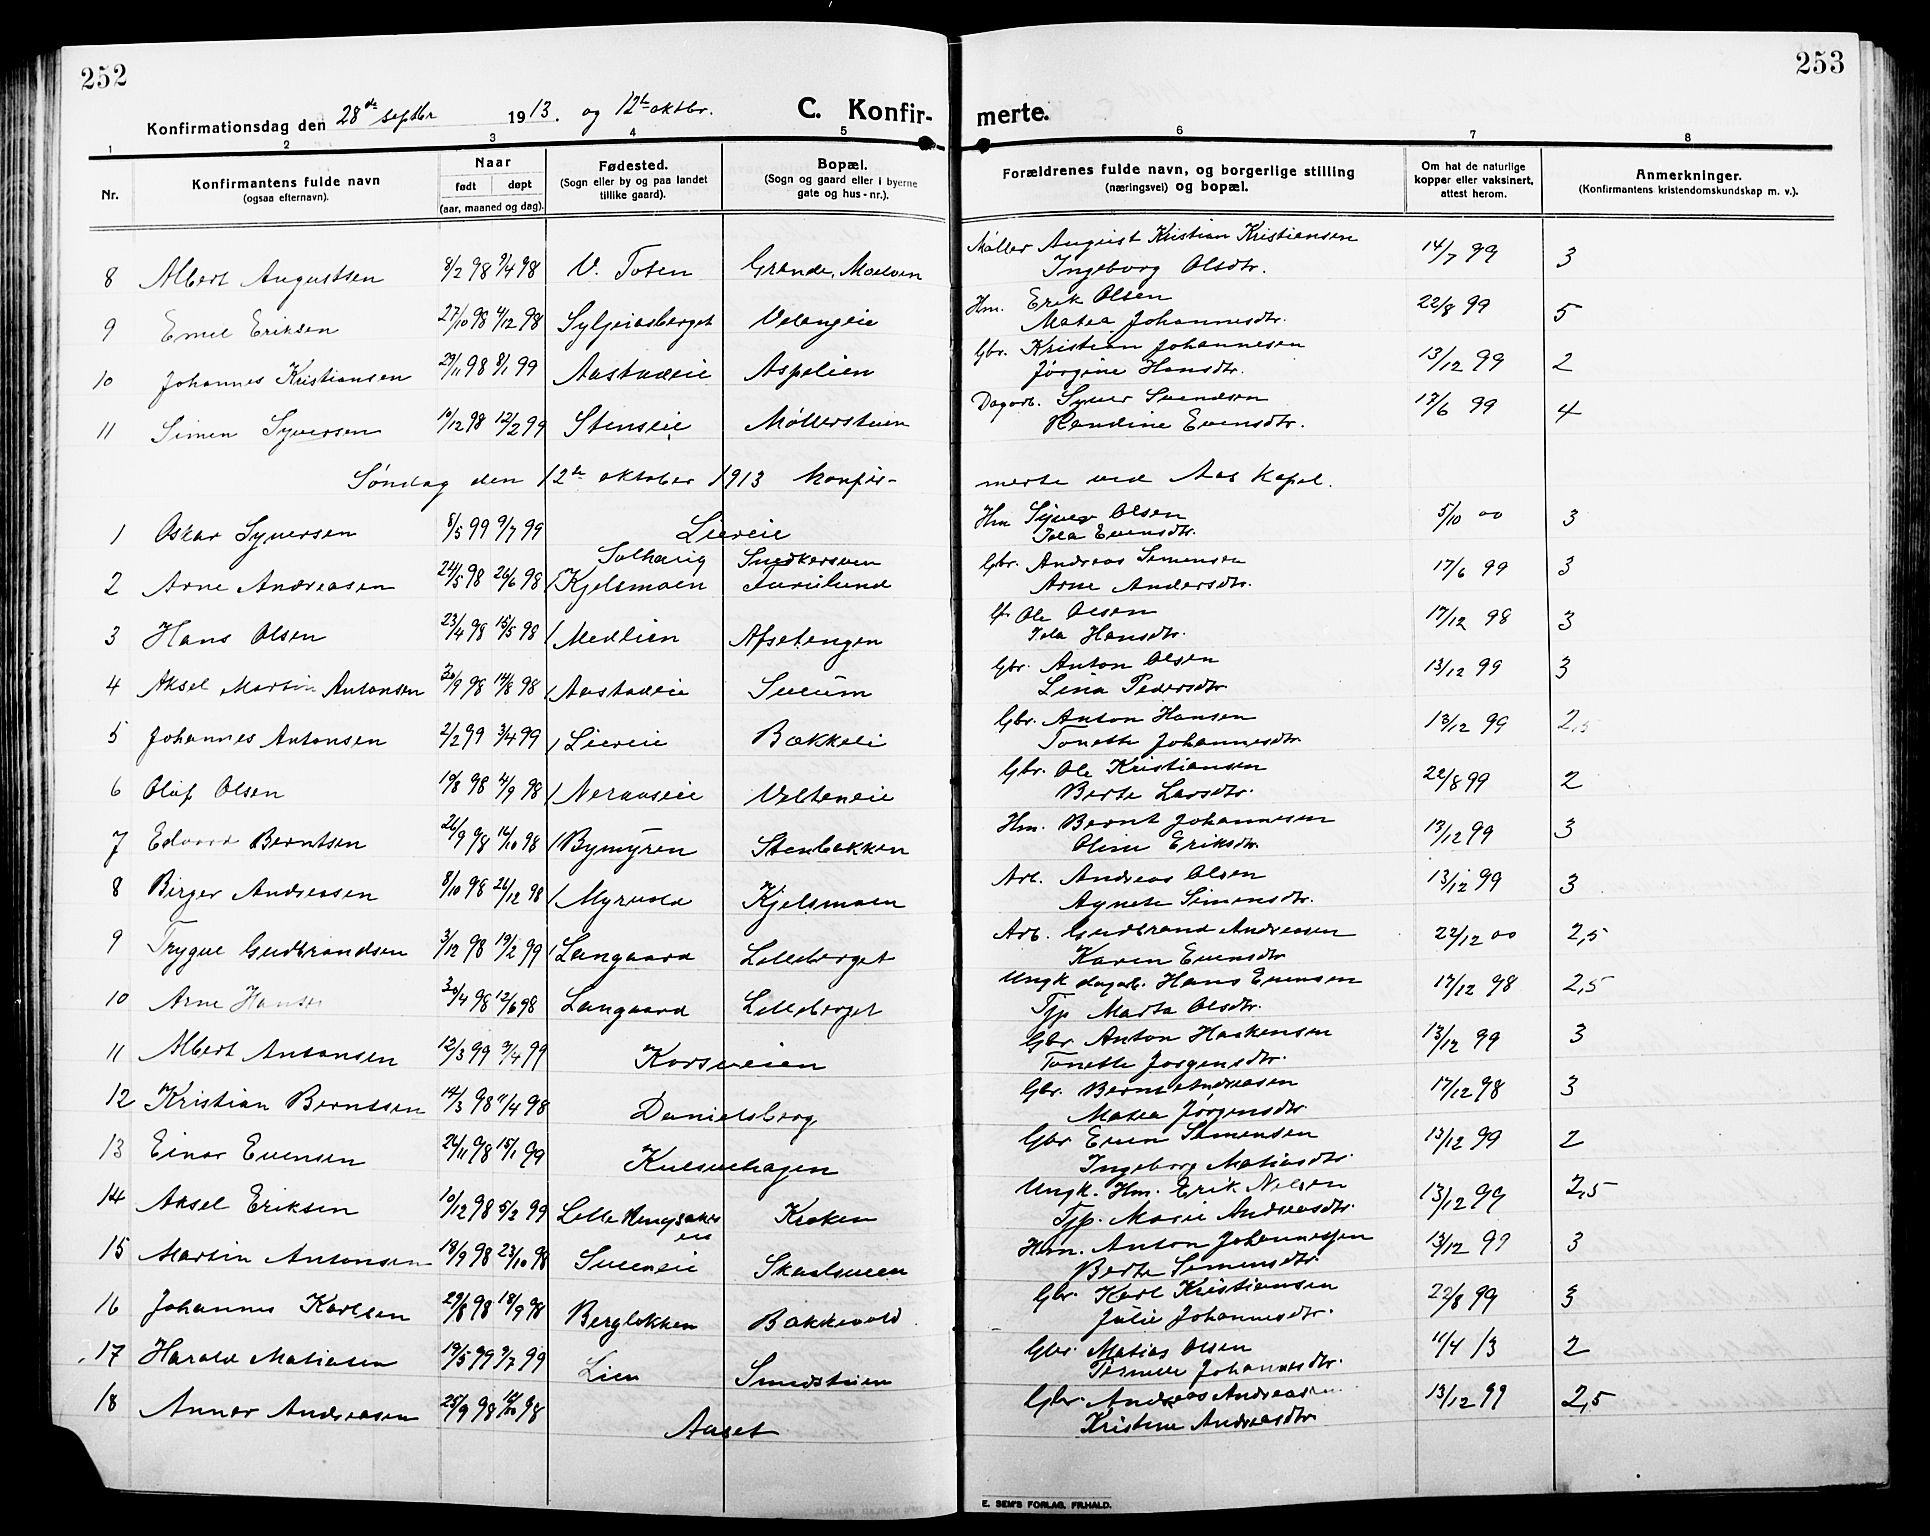 252
253
Konfirmationsdag den 28de septbr 1913. og 12te oktbr.
C. Konfir-
merte.
1 2 3 4 5 6 7 8
Nr.
Konfirmantens fulde navn
(ogsaa efternavn).
Naar
født døpt
(aar, maaned og dag).
Fødested.
(Sogn eller by og paa landet
tillike gaard).
Bopæl.
(Sogn og gaard eller i byerne
gate og hus-nr.).
Forældrenes fulde navn, og borgerlige stilling
(næringsvei) og bopæl.
Om hat de naturlige
kopper eller vaksinert,
attest herom.
Anmerkninger.
(Konfirmantens kristendomskundskap m. v.).
8 Albert Augustsen 8/2 98 9/4 98 V. Toten Grande, Moelven Møller August Kristian Kristiansen 14/7 99 3
Ingeborg Olsdtr.
9 Emil Eriksen 27/10 98 4/12 98 Syljeiasberget Velangeie Hm. Erik Olsen 22/8 99 5
Matea Johannesdtr.
10 Johannes Kristiansen 29/11 98 8/1 99 Aastadeie Aspelien Gbr. Kristian Johannesen 13/12 99 2
Jørgine Hansdtr.
11 Simen Syversen 10/12 98 12/2 99 Stenseie Møllerstuen Dagarb. Syver Svendsen 17/6 99 4
Randine Evensdtr.
Søndag den 12te oktober 1913 konfir-
merte ved Aas Kapel.
1 Oskar Syversen 8/5 99 9/7 99 Liereie Hm Syver Olsen 5/10 00 3
Ida Evensdtr.
Solhaug Snedkersven
2 Arne Andreasen 24/5 98 26/6 98 Kjelsmoen Furulund Gbr. Andreas Simensen 17/6 99 3
Arne Andersdtr.
3 Hans Olsen 23/4 98 15/5 98 Medlien Afsetengen Lf. Ole Olsen 17/12 98 3
Ida Hansdtr.
4 Aksel Martin Antonsen 20/9 98 14/8 98 Aastadeie Sveum Gbr. Anton Olsen 13/12 99 3
Lina Pedersdtr
5 Johannes Antonsen 2/2 99 3/4 99 Liereie Bækkeli Gbr. Anton Hansen 13/12 99 2,5
Tonette Johannesdtr
6 Olaf Olsen 10/8 98 4/9 98 Neraaseie Velteneie Gbr. Ole Kristiansen 22/8 99 2
Berte Larsdtr.
7 Edvard Berntsen 26/9 98 16/10 98 Bymyren Stenbakken Hm. Bernt Johannesen 13/12 99 3
Oline Eriksdtr.
8 Birger Andreasen 8/10 98 26/12 98 Myrvold Kjelsmoen Arb. Andreas Olsen 13/12 99 3
Agnete Simensdtr.
9 Trygve Gudbrandsen 3/12 98 19/2 99 Langaard Lilleberget Arb. Gudbrand Andreasen 22/12 00 2,5
Karen Evensdtr
10 Arne Hansen 30/4 98 12/6 98 Langaard Lilleberget Ungk dagarb. Hans Evensen 17/12 98 2,5
Tjp Marta Olsdtr.
11 Albert Antonsen 12/3 99 9/4 99 Korsveien Gbr. Anton Haakensen 13/12 99 3
Tonette Jørgensdtr.
12 Kristian Berntsen 14/3 98 11/4 98 Danielsberg Gbr. Bernt Andreasen 17/12 98 3
Matea Jørgensdtr
13 Einar Evensen 26/11 98 15/1 99 Kulsvehagen Gbr Even Simensen 13/12 99 2
Ingeborg Matiasdtr.
14 Aksel Eriksen 10/12 98 5/2 99 Lille Ringsaker Kroken Ungk. Hm. Erik Nilsen 13/12 99 2,5
eie Tjp. Marie Andreasdtr.
15 Martin Antonsen 18/9 98 23/10 98 Sveeneie Skaalsveen Hm. Anton Johannessen 13/12 99 3
Berte Simensdtr
16 Johannes Karlsen 29/8 98 18/9 98 Bergløkken Bakkevold Gbr. Karl Kristiansen 22/8 99 3
Julie Johannesdtr.
17 Harald Matiasen 19/5 99 9/7 99 Lien Smedstuen Gbr. Matias Olsen 11/4 13 2
Johannesdtr.
18 Annar Andreasen 25/9 98 98 Aaset Gbr. Andreas Andreasen 13/12 99 2,5
Kristine Andreasdtr
E. SEM'S FORLAG, FR.HALD.